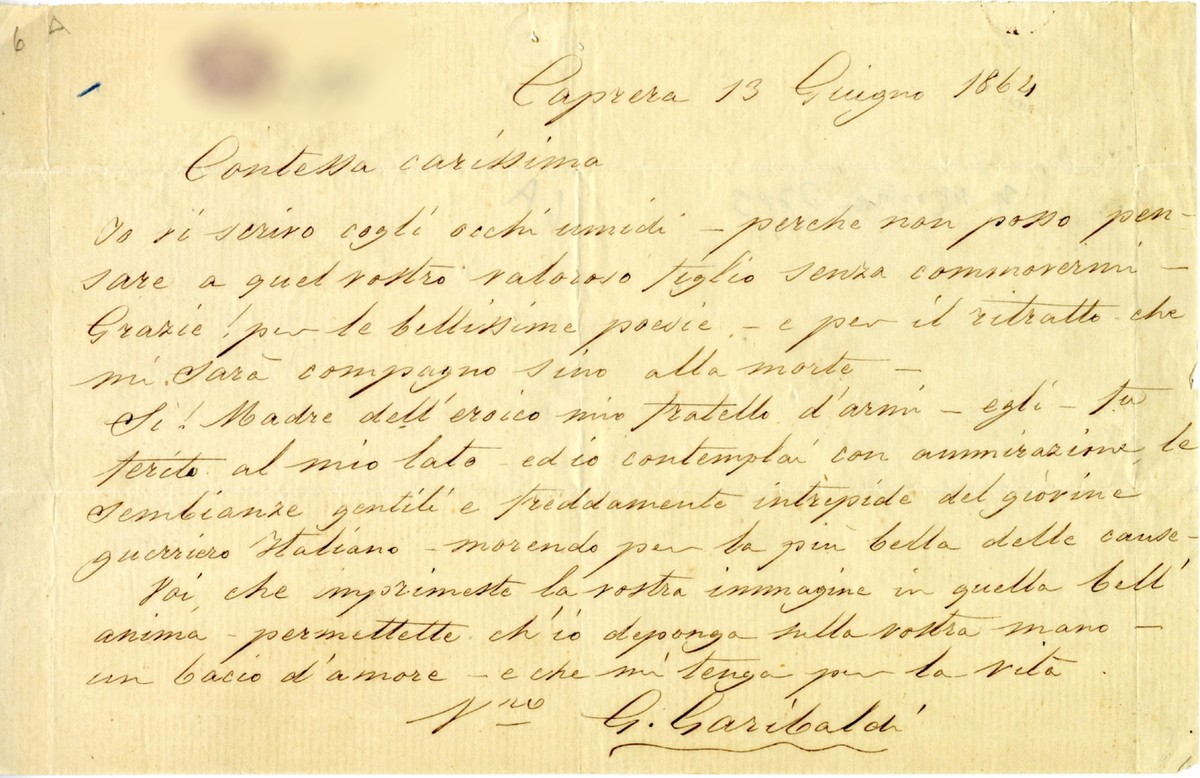 6 A
Caprera 13 Giugno 1864
Contessa carissima
Io vi scrivo cogli occhi umidi - perche non posso pen-
sare a quel vostro valoroso figlio senza commovermi -
Grazie! per le bellissime poesie - e per il ritratto che
mi sarà compagno sino alla morte -
Si! Madre dell'eroico mio fratello d'armi - egli - fu
ferito al mio lato - ed io contemplai con ammirazione le
sembianze gentili e freddamente intrepide del giovine
guerriero Italiano - morendo per la più bella delle cause -
Voi, che imprimeste la vostra immagine in quella bell'
anima - permettette ch'io deponga sulla vostra mano -
un bacio d'amore - e che mi tenga per la vita
Vro G. Garibaldi